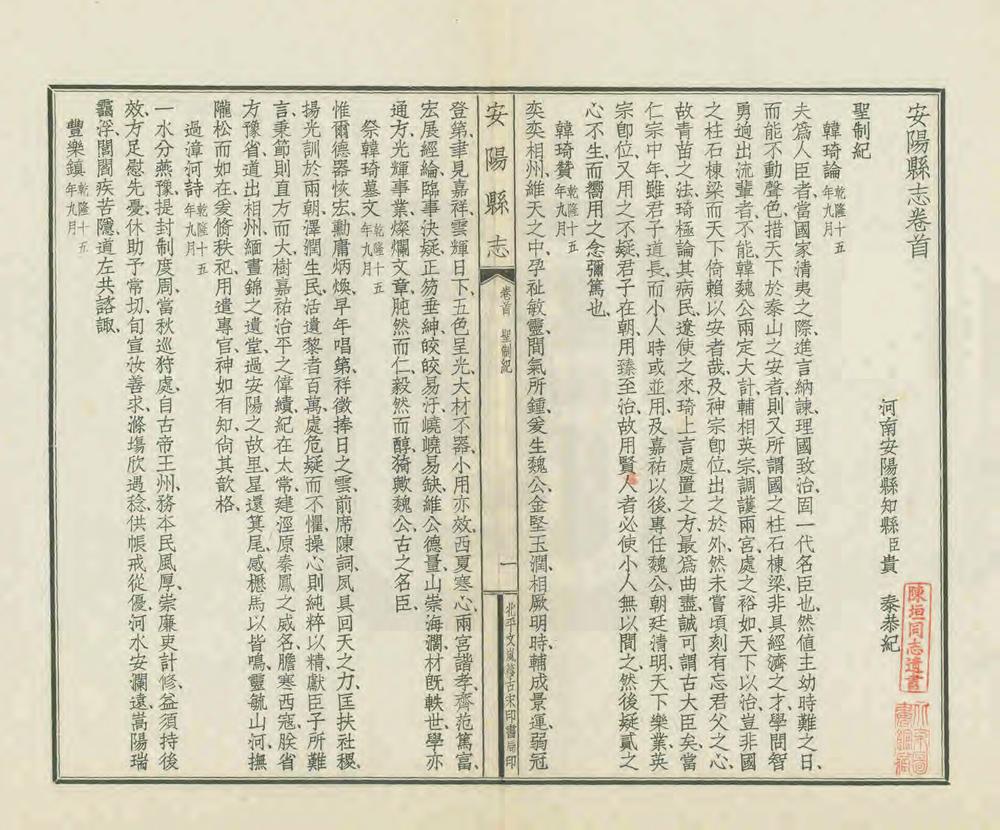 安陽縣志卷首
河南安陽縣知縣臣貴 泰恭紀
聖制紀
韓琦論乾隆十五年九月
夫爲人臣者當國家清夷之際、進言納諫、理國致治、固一代名臣也、然值主幼時難之日、
而能不動聲色、措天下於泰山之安者、則又所謂國之柱石棟梁、非具經濟之才、學問智
勇過出流輩者不能、韓魏公兩定大計、輔相英宗、調護兩宮、處之裕如、天下以治、豈非國
之柱石棟梁、而天下倚賴以安者哉、及神宗卽位、出之於外、然未嘗頃刻有忘君父之心、
故青苗之法、琦極論其病民、遼使之來、琦上言處置之方、最爲曲盡、誠可謂古大臣矣、當
仁宗中年、雖君子道長、而小人時或並用、及嘉祐以後、專任魏公、朝廷清明、天下樂業、英
宗卽位、又用之不疑、君子在朝、用臻至治、故用賢人者、必使小人無以間之、然後疑貳之
心不生、而嚮用之念彌篤也、
韓琦贊乾隆十五年九月
奕奕相州、維天之中、孕祉敏靈、間氣所鍾、爰生魏公、金堅玉潤、相厥明時、輔成景運、弱冠
安陽縣志
卷首 聖制紀
一
北平文嵐簃古宋印書局印
登第、聿見嘉祥、雲輝日下、五色呈光、大材不器、小用亦效、西夏寒心、兩宮諧孝、齊范篤富、
宏展經綸、臨事決疑、正笏垂紳、皎皎易汙、嶢嶢易缺、維公德量、山崇海濶、材旣軼世、學亦
通方、光輝事業、燦爛文章、肫然而仁、毅然而醇、猗歟魏公、古之名臣、
祭韓琦墓文乾隆十五年九月
惟爾德器恢宏、勳庸炳煥、早年唱第、祥徵捧日之雲、前席陳詞、夙具回天之力、匡扶社稷、
揚光訓於兩朝、澤潤生民、活遺黎者百萬、處危疑而不懼、操心則純粹以精、獻臣子所難
言、秉節則直方而大、樹嘉祐治平之偉績、紀在太常、建涇原秦鳳之威名、膽寒西寇、朕省
方豫省、道出相州、緬晝錦之遺堂、過安陽之故里、星還箕尾、感櫪馬以皆鳴、靈毓山河、撫
隴松而如在、爰脩秩祀、用遣專官、神如有知、尙其歆格、
過漳河詩乾隆十五年九月
一水分燕豫、提封制度周、當秋巡狩處、自古帝王州、務本民風厚、崇廉吏計修、益須持後
效、方足慰先憂、休助予常切、旬宣汝善求、滌場欣遇稔、供帳戒從優、河水安瀾遠、嵩陽瑞
靄浮、閭閻疾苦隱、道左共諮諏、
豐樂鎮乾隆十五年九月
陳垣同志遺書